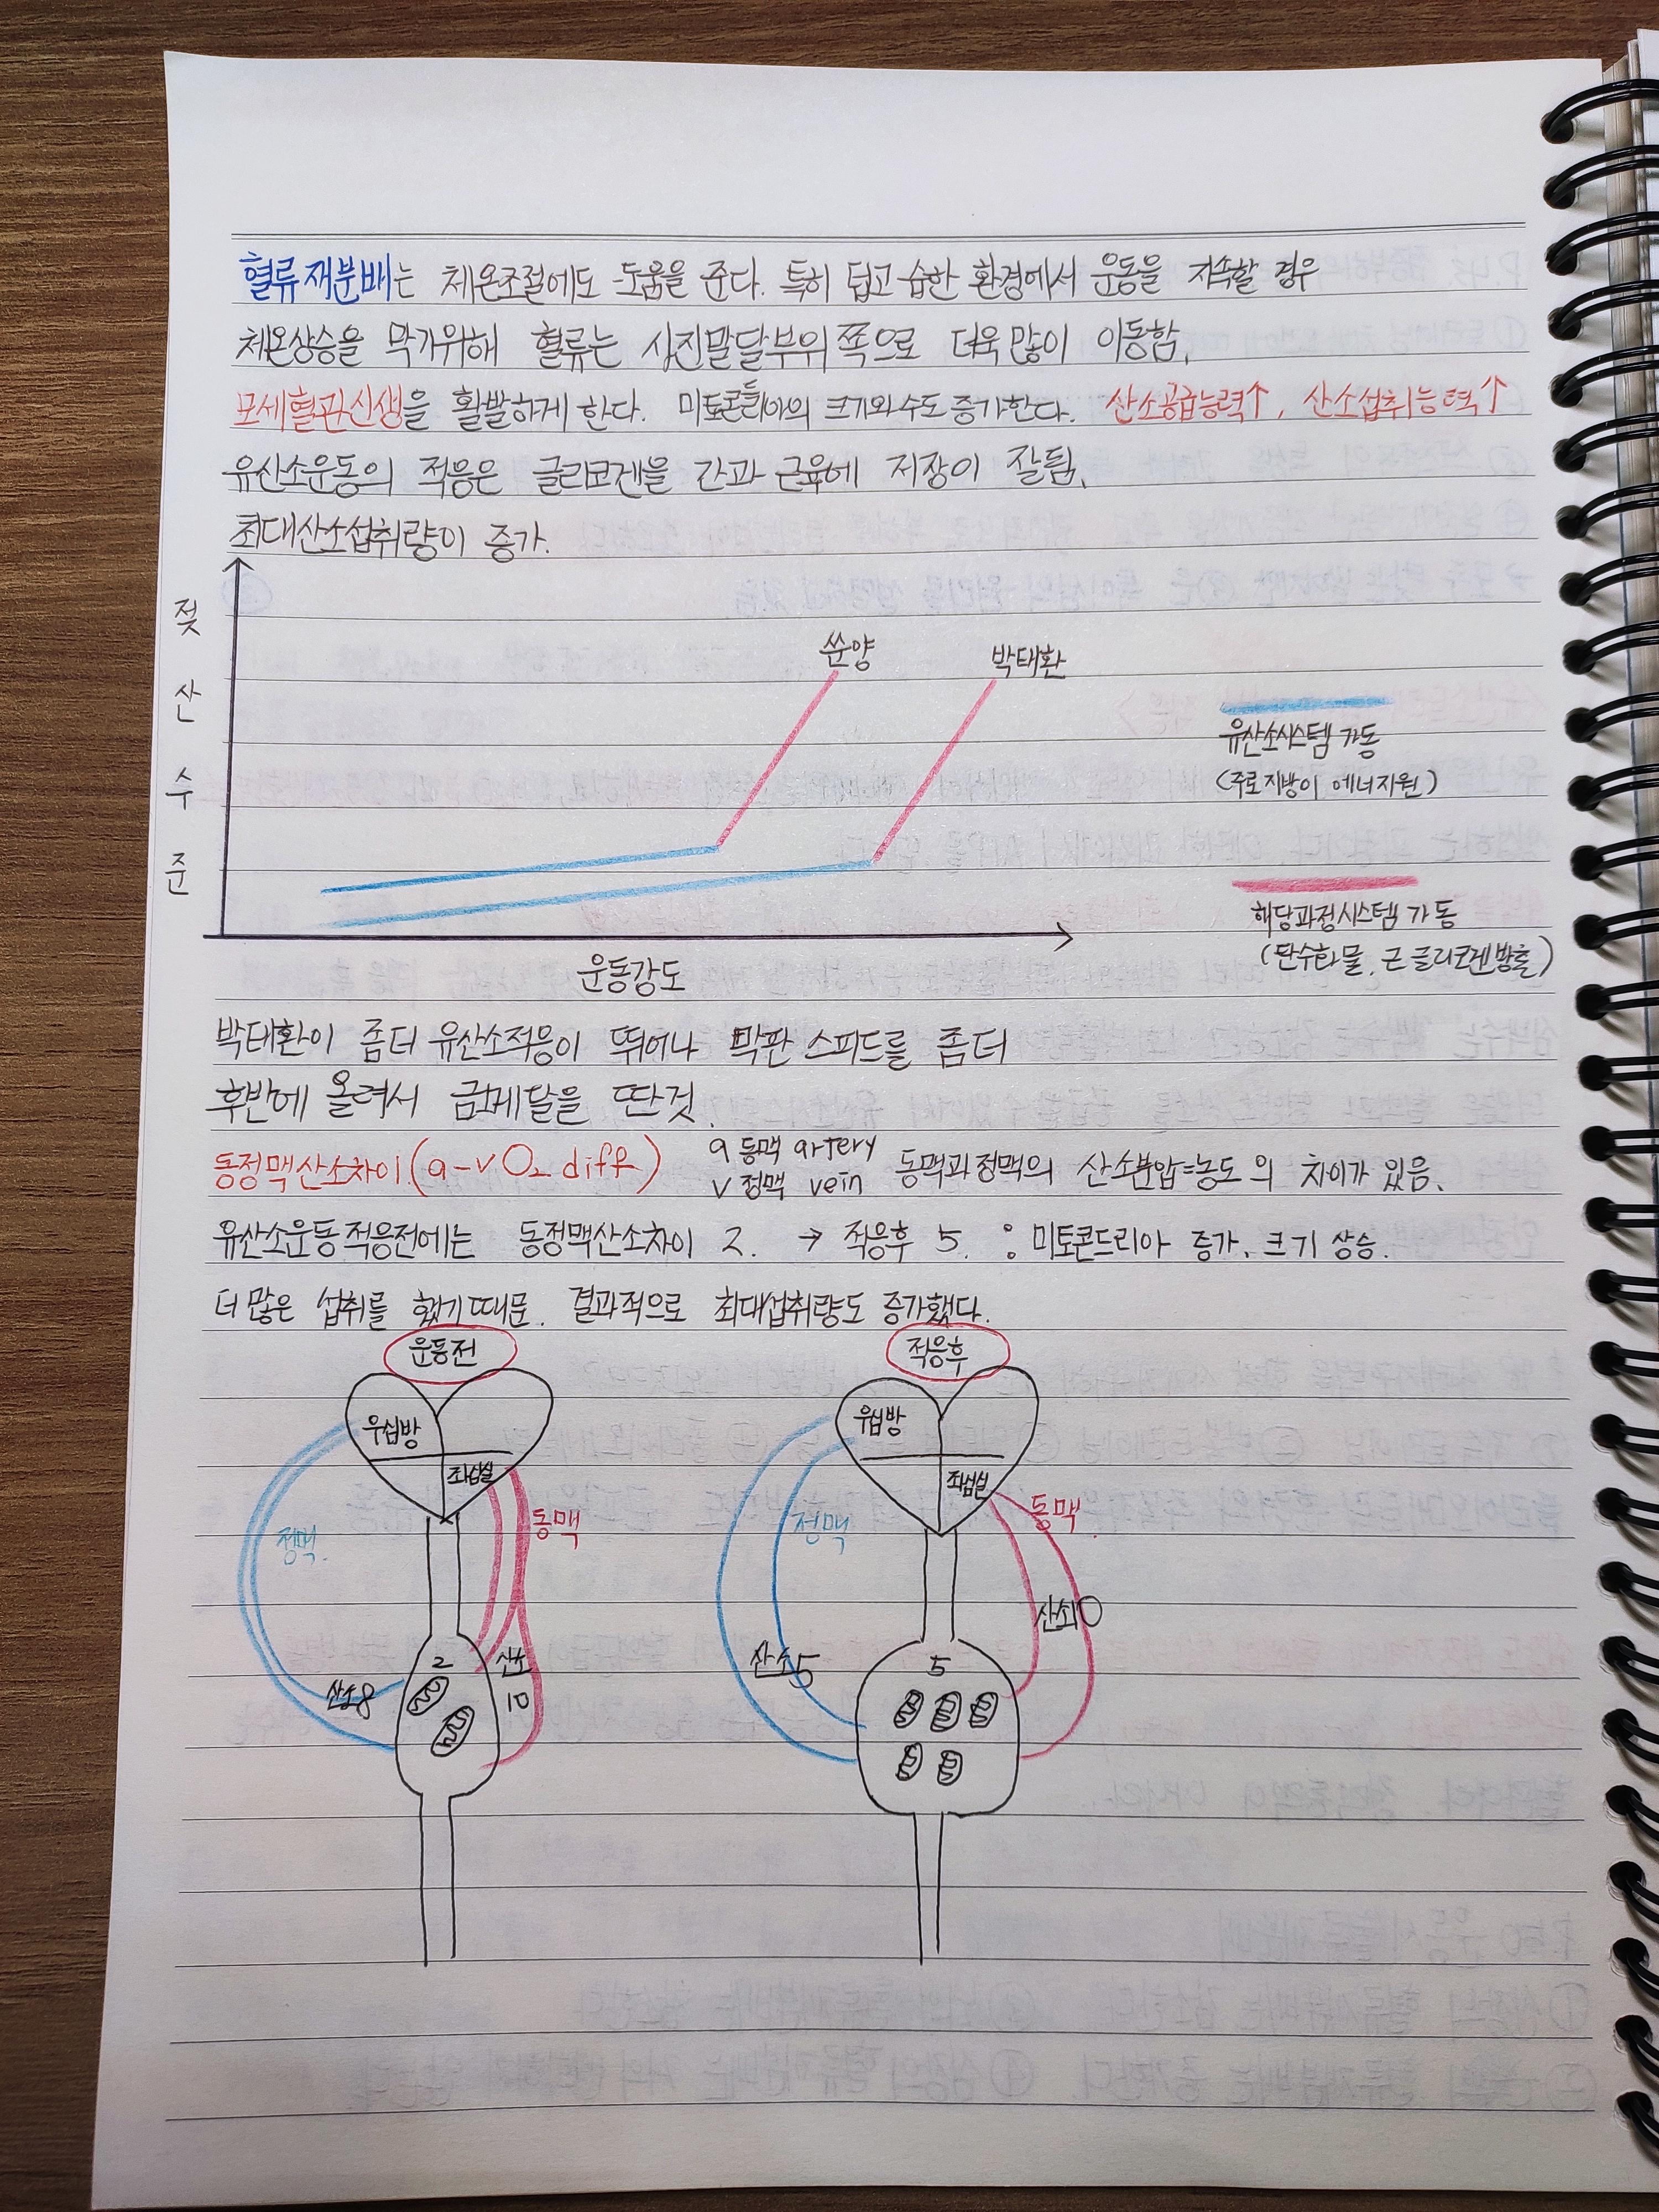 혈류재분배는 체온조절에도 도움을 준다. 특히 덥고 습한 환경에서 운동을 지속할 경우
체온상승을 막기위해 혈류는 사진말달부위쪽으로 더욱많이 이동함.
모세혈관신생을 활발하게 한다. 미토콘드리아의 크기와수도 증가한다. 산소공급능력↑, 산소섭취능력↑
유산소운동의 적응은 글리코겐을 간과 근육에 저장이 잘됨.
최대산소섭취량이 증가.
젖산수준
쑨양
박태환
유산소시스템 가동
(주로지방이 에너지원)
해당과정시스템 가동
(탄수화물, 근글리코겐방출)
운동강도
박태환이 좀더 유산소적응이 뛰어나 막판 스피드를 좀더
후반에 올려서 금메달을 딴것.
동정맥산소차이(a-v O2 diff) a 동맥 artery
v 정맥 vein 동맥과정맥의 산소분압=농도의 차이가 있음.
유산소운동적응전에는 동정맥산소차이 2. → 적응후 5. : 미토콘드리아 증가, 크기 상승.
더 많은 섭취를 했기때문. 결과적으로 최대섭취량도 증가했다.
운동전
우심방
좌심실
정맥.
동맥
산소8
2
산소
10
적응후
우심방
좌심실
정맥
동맥.
산소10
산소5
5